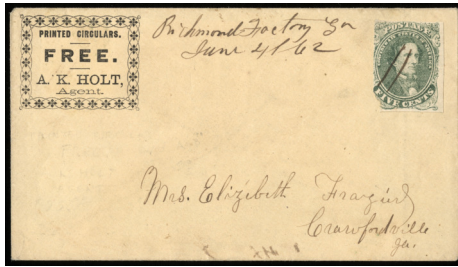 PRINTED CIRCULARS.
FREE.
A. K. HOLT,
Agent.
Richmond Factory Ga
June 4/62
POSTAGE
FIVE CENTS
Mrs. Elizibeth Frazier
Crawfordville
Ga.